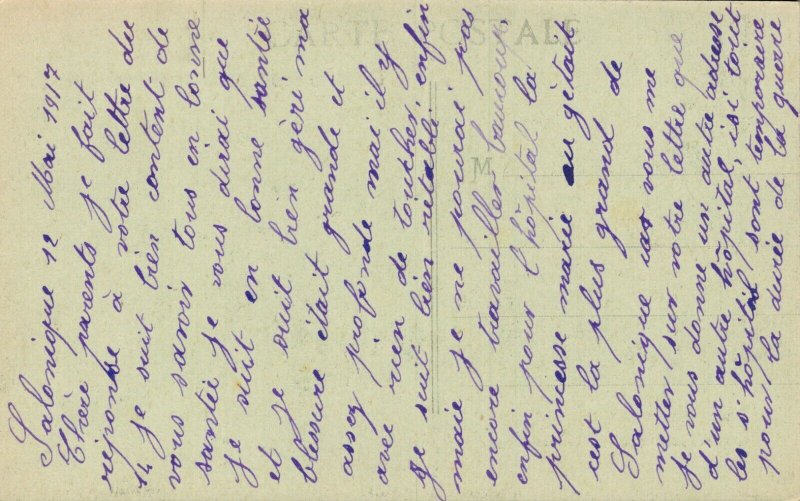 CARTE POSTALE
Salonique 12 Mai 1917
Chère parents je fait
réponse à votre lettre du
14 je suit bien content de
vous savoir tous en bonne
santée je vous dirai que
je suit en bonne santée
et je suit bien gèri ma
blessure était grande et
assez profonde mai il y
avec rien de toucher, enfin
je suit bien retabli, enfin
maie je ne pourai pas
encore travailler beaucoup
enfin pour l'hôpital la
princesse marie ou jetait
cest la plus grand de
Salonique car vous me
metter sur notre lettre que
je vous donne un autre adresse
d'un autre hôpital, isi tout
les s'hôpital sont temporaire
pour la durée de la guerre